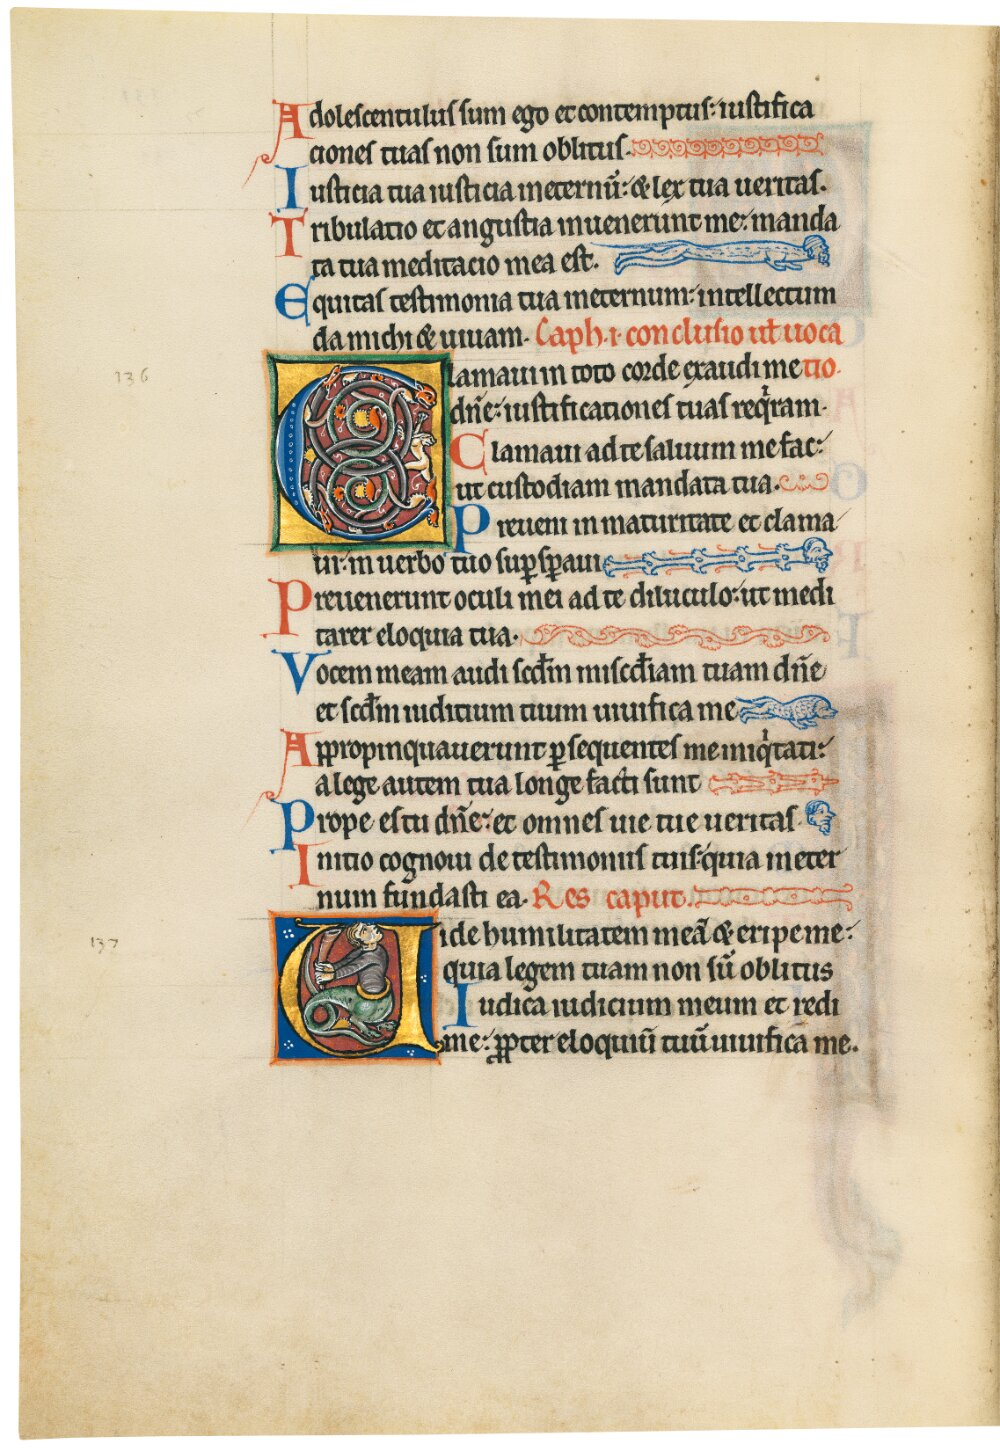 Adolescentulus sum ego et contemptus: iustifica
ciones tuas non sum oblitus.
Iusticia tua iusticia ineternū: & lex tua ueritas.
Tribulatio et angustia inuenerunt me: manda
ta tua meditacio mea est.
Equitas testimonia tua ineternum: intellectum
da michi & uiuam. Caph. i. conclusio ut uoca
136
Clamaui in toto corde exaudi me tio.
dn̄e: iustificationes tuas reqͥram.
Clamaui ad te saluum me fac:
ut custodiam mandata tua.
Preueni in maturitate et clama
ui: in uerbo tuo suꝑsꝑaui
Preuenerunt oculi mei ad te diluculo: ut medi
tarer eloquia tua.
Vocem meam audi scd̄m miscd̄iam tuam dn̄e
et scd̄m iudicium tuum uiuifica me
Appropinquauerunt ꝑsequentes me iniqͥtati:
a lege autem tua longe facti sunt
Prope es tu dn̄e: et omnes uie tue ueritas
Initio cognoui de testimoniis tuis: quia ineter
num fundasti ea. Res caput.
137
Uide humilitatem meā & eripe me:
quia legem tuam non sū oblitus
Iudica iudicium meum et redi
me: ꝓpter eloquiū tuū uiuifica me.